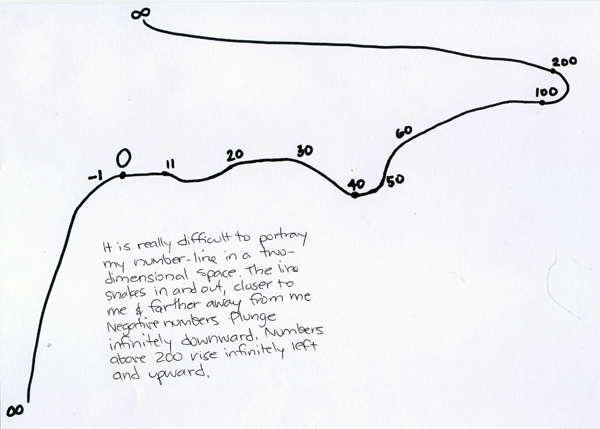 ∞
200
100
60
-1
0
11
20
30
40
50
It is really difficult to portray
my number-line in a two-
dimensional space. The line
snakes in and out, closer to
me & farther away from me
Negative numbers plunge
infinitely downward. Numbers
above 200 rise infinitely left
and upward.
∞